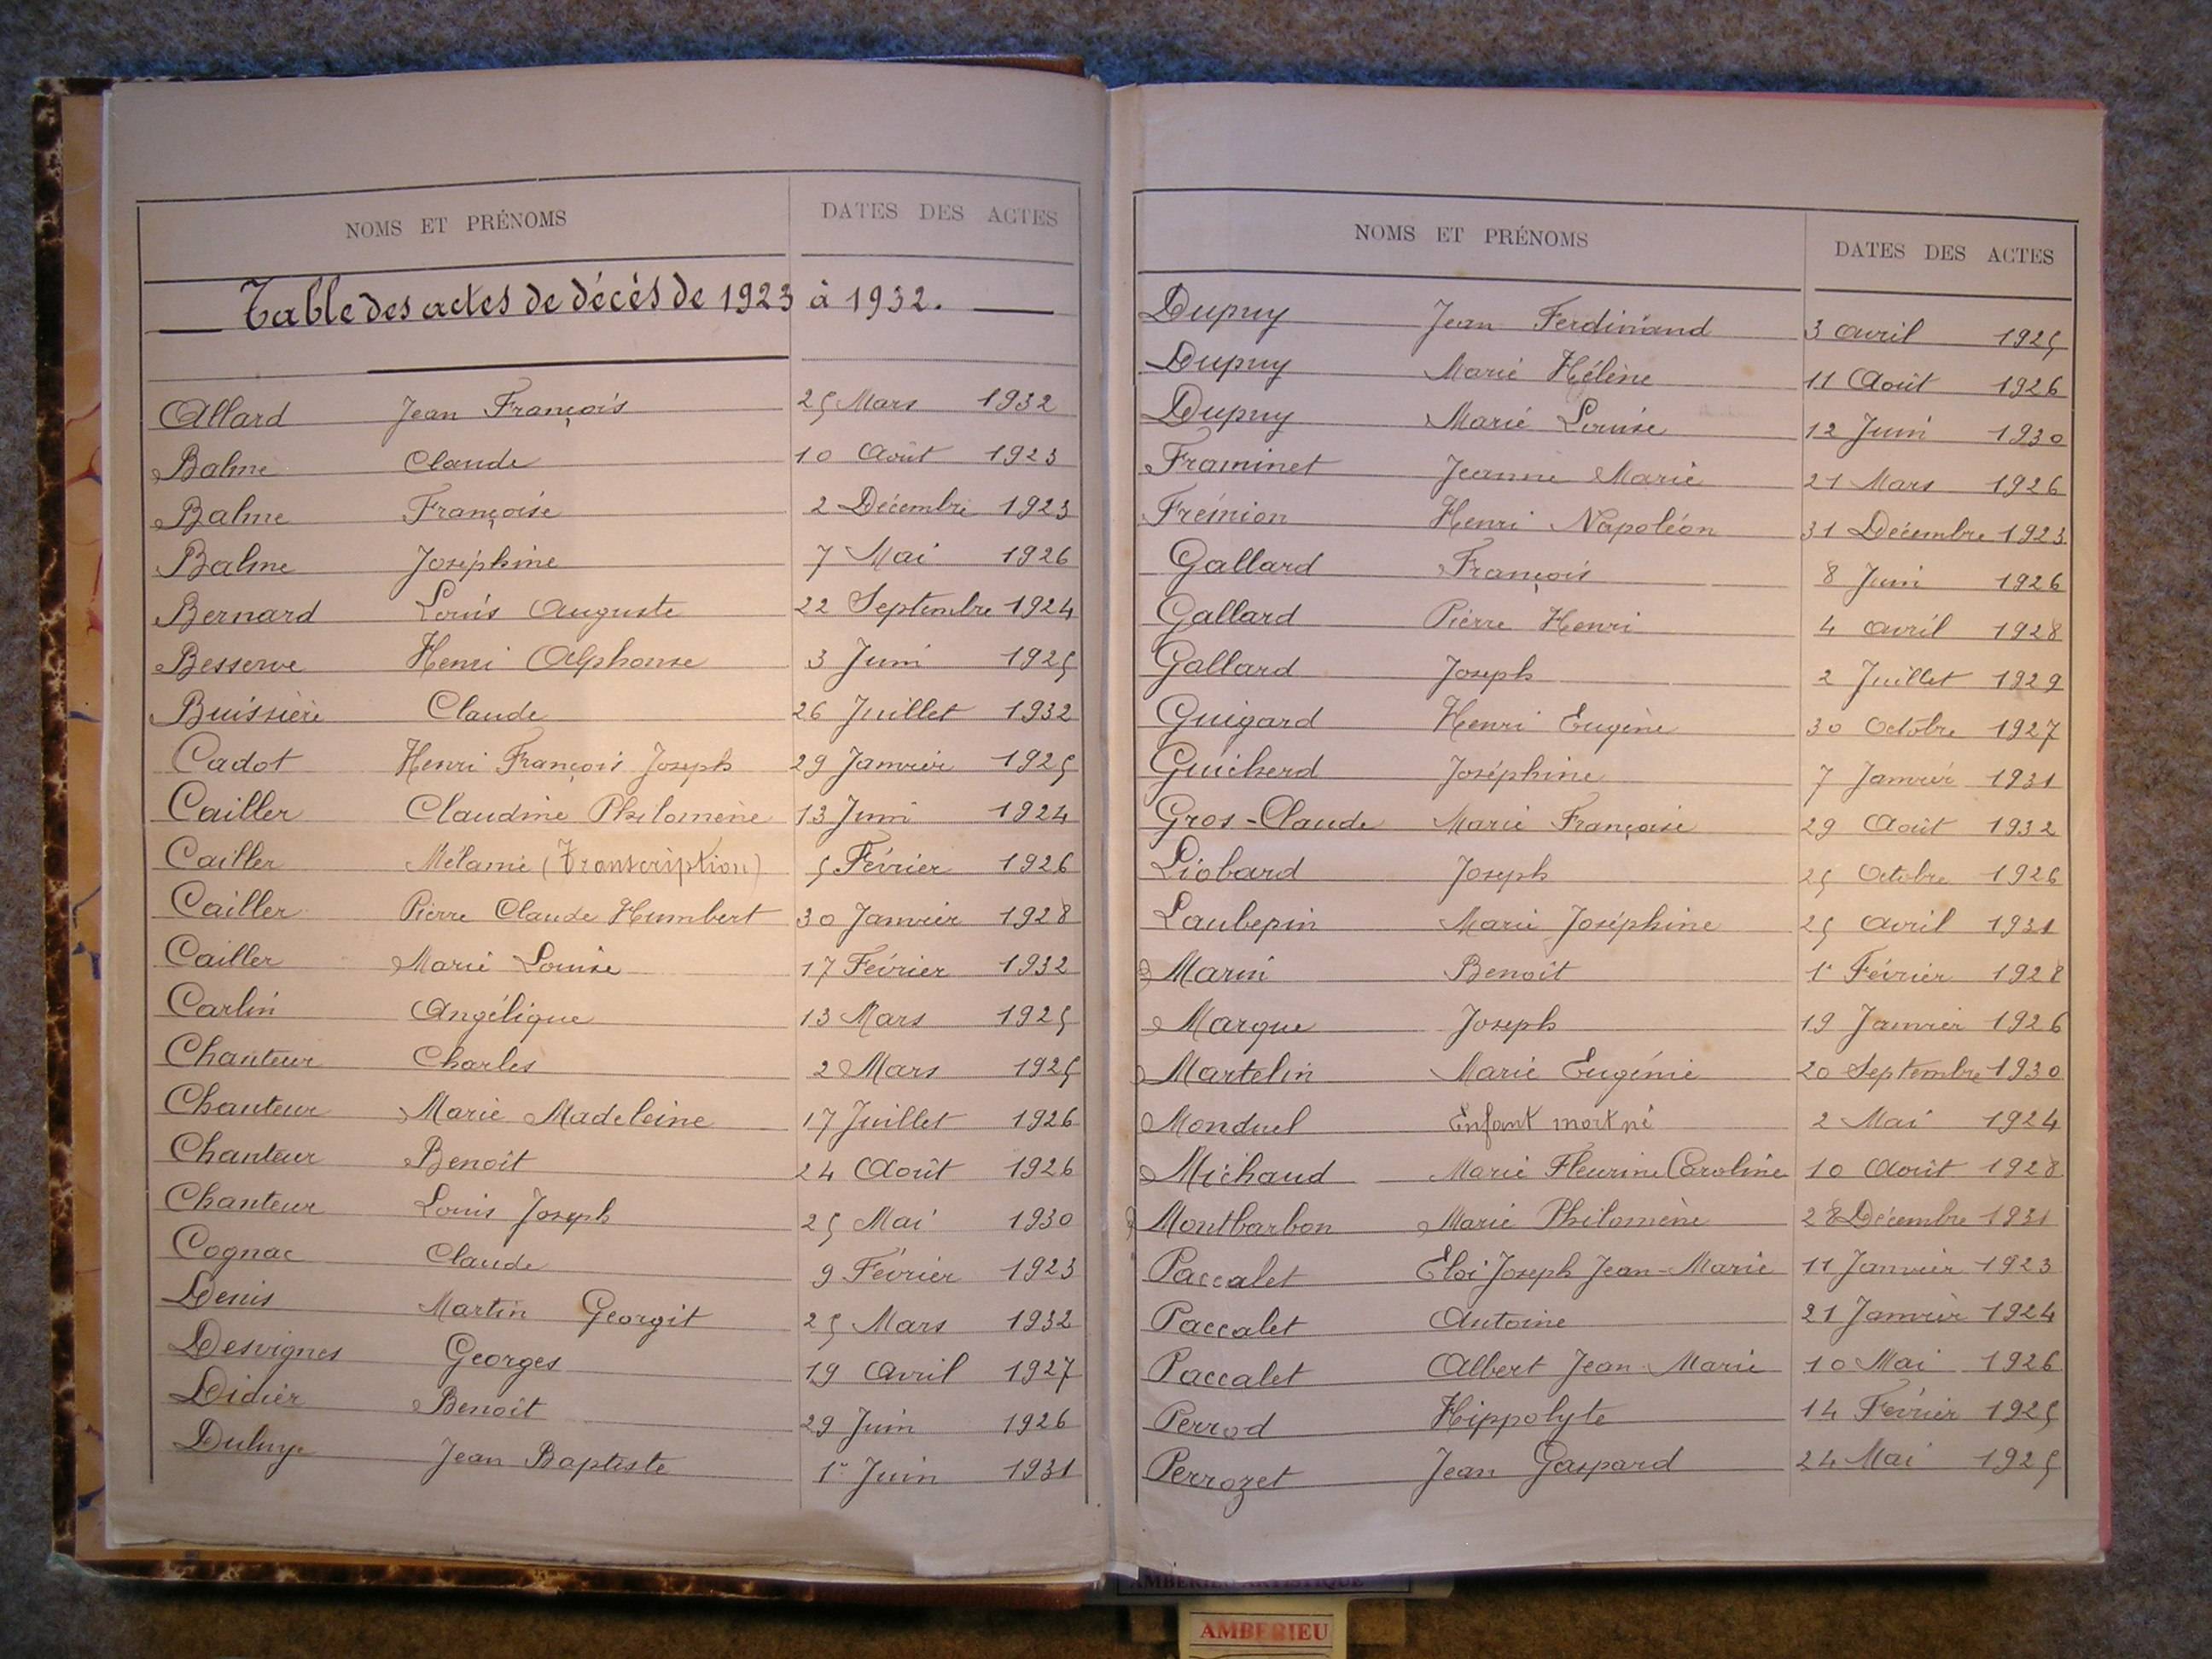 NOMS ET PRÉNOMS DATES DES ACTES
Table des actes de décès de 1923 à 1932.
Allard Jean François 25 Mars 1932
Balme Claude 10 Août 1923
Balme Françoise 2 Décembre 1923
Balme Joséphine 7 Mai 1926
Bernard Louis Auguste 22 Septembre 1924
Besserve Henri Alphonse 3 Juin 1925
Buissière Claude 26 Juillet 1932
Cadot Henri François Joseph 29 Janvier 1925
Cailler Claudine Philomène 13 Juin 1924
Cailler Mélanie (Transcription) 5 Février 1926
Cailler Pierre Claude Humbert 30 Janvier 1928
Cailler Marie Louise 17 Février 1932
Carlin Angélique 13 Mars 1925
Chanteur Charles 2 Mars 1925
Chanteur Marie Madeleine 17 Juillet 1926
Chanteur Benoît 24 Août 1926
Chanteur Louis Joseph 25 Mai 1930
Cognac Claude 9 Février 1923
Denis Martin Georgit 25 Mars 1932
Desvignes Georges 19 Avril 1927
Didier Benoît 29 Juin 1926
Jean Baptiste 1r Juin 1931
NOMS ET PRÉNOMS DATES DES ACTES
Dupuy Jean Ferdinand 3 Avril 1925
Dupuy Marie Hélène 11 Août 1926
Dupuy Marie Louise 12 Juin 1930
Framinet Jeanne Marie 21 Mars 1926
Frémion Henri Napoléon 31 Décembre 1923
Gallard François 8 Juin 1926
Gallard Pierre Henri 4 Avril 1928
Gallard Joseph 2 Juillet 1929
Guigard Henri Eugène 30 Octobre 1927
Guicherd Joséphine 7 Janvier 1931
Gros-Claude Marie Françoise 29 Août 1932
Liobard Joseph 25 Octobre 1926
Laubepin Marie Joséphine 25 Avril 1931
Marin Benoît 1r Février 1928
Marque Joseph 19 Janvier 1926
Martelin Marie Eugénie 20 Septembre 1930
Monduel Enfant mort né 2 Mai 1924
Michaud Marie Fleurine Caroline 10 Août 1928
Montbarbon Marie Philomène 28 Décembre 1931
Paccalet Eloi Joseph Jean-Marie 11 Janvier 1923
Paccalet Antoine 21 Janvier 1924
Paccalet Albert Jean Marie 10 Mai 1926
Perrod Hippolyte 14 Février 1925
Perrozet Jean Gaspard 24 Mai 1925
AMBERIEU ARTISTIQUE
AMBERIEU